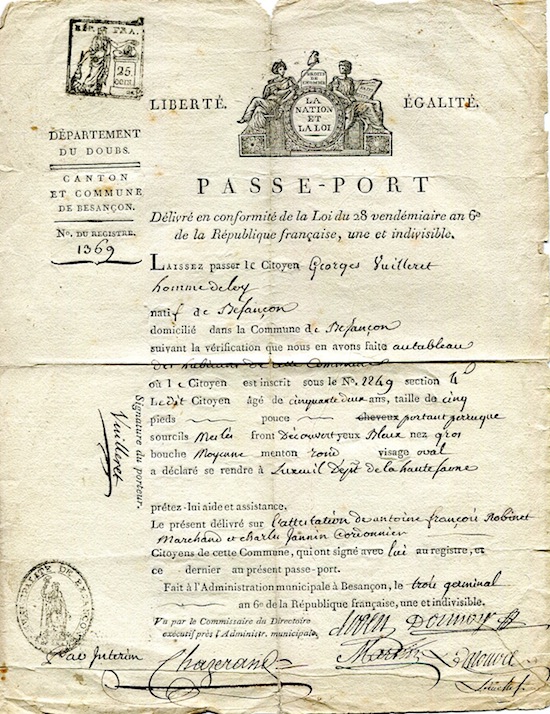 RÉP. FRA.
25
CENT.
DROITS
DE
L'HOMME
LA
NATION
ET
LA LOI
LIBERTÉ. ÉGALITÉ.
DÉPARTEMENT
DU DOUBS.
CANTON
ET COMMUNE
DE BESANÇON.
No. DU REGISTRE.
1369
PASSE-PORT
Délivré en conformité de la Loi du 28 vendémiaire an 6e
de la République française, une et indivisible.
LAISSEZ passer le Citoyen Georges Vuilleret
homme de loy
natif de Besançon
domicilié dans la Commune de Besançon
suivant la vérification que nous en avons faite au tableau
des habitans de cette Commune
où le Citoyen est inscrit sous le No. 2249 section 4e
Le dit Citoyen âgé de cinquante deux ans, taille de cinq
pieds pouce cheveux portant perruque
sourcils Meslés front Découvert yeux Bleux nez gros
bouche Moyenne menton rond visage oval
a déclaré se rendre à Luxeuil Dept. de la haute saone
Signature du porteur.
Vuilleret
prêtez-lui aide et assistance.
Le présent délivré sur l'attestation de antoine françois Robinet
Marchand et charles Jannin Cordonnier
Citoyens de cette Commune, qui ont signé avec lui au registre, et
ce dernier au présent passe-port.
Fait à l'Administration municipale à Besançon, le trois germinal
an 6e de la République française, une et indivisible.
Vu par le Commissaire du Directoire
exécutif près l'Administr. municipale,
par Interim
MUNICIPALITÉ DE BESANÇON